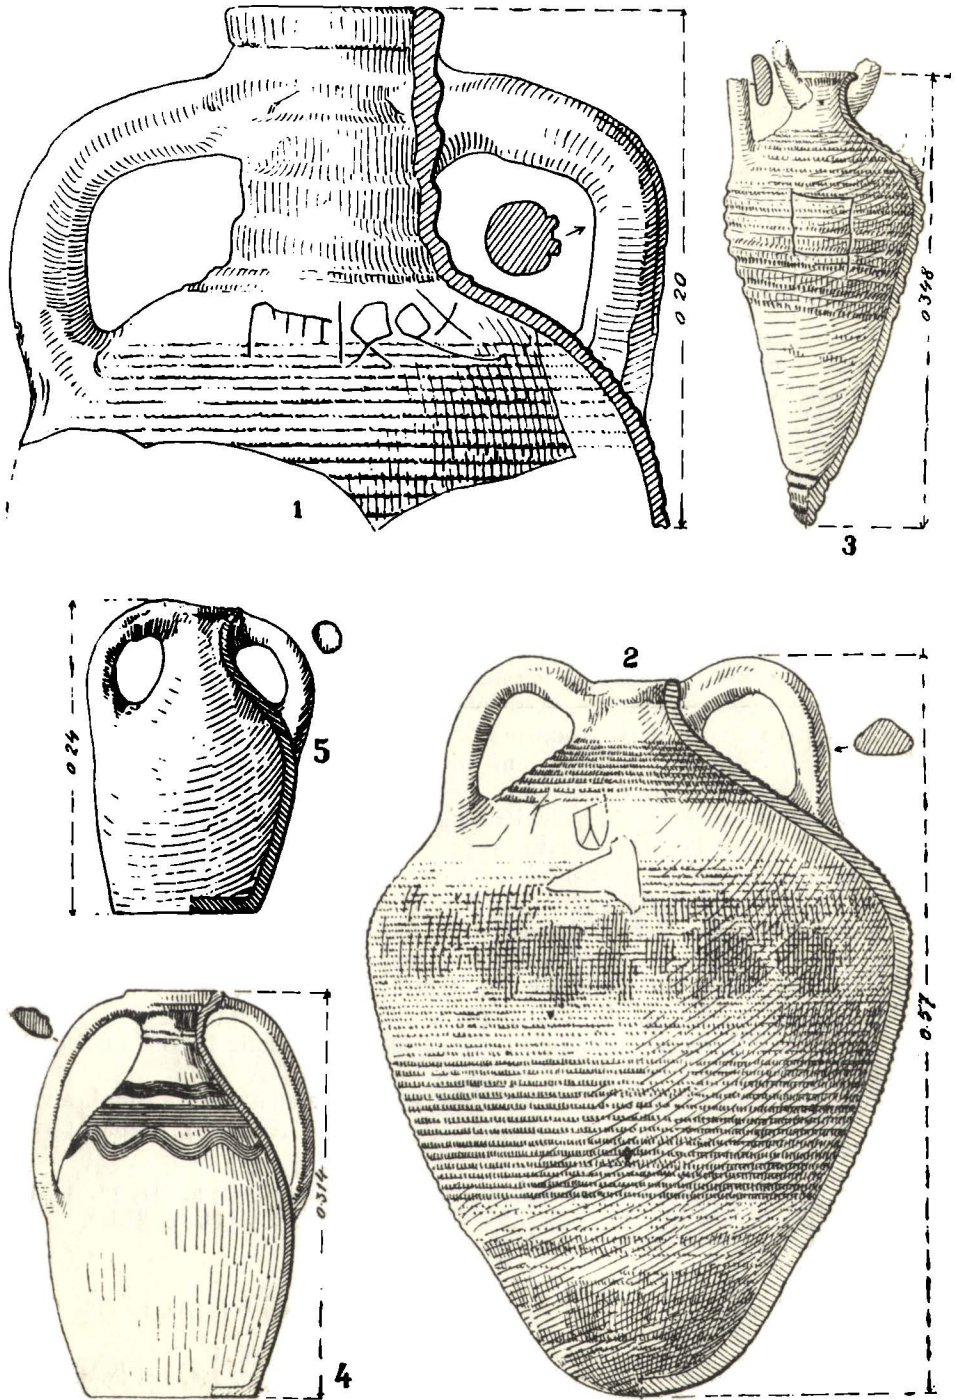 0 20
1
0 348
3
2
0 24
5
0.57
0 314
4